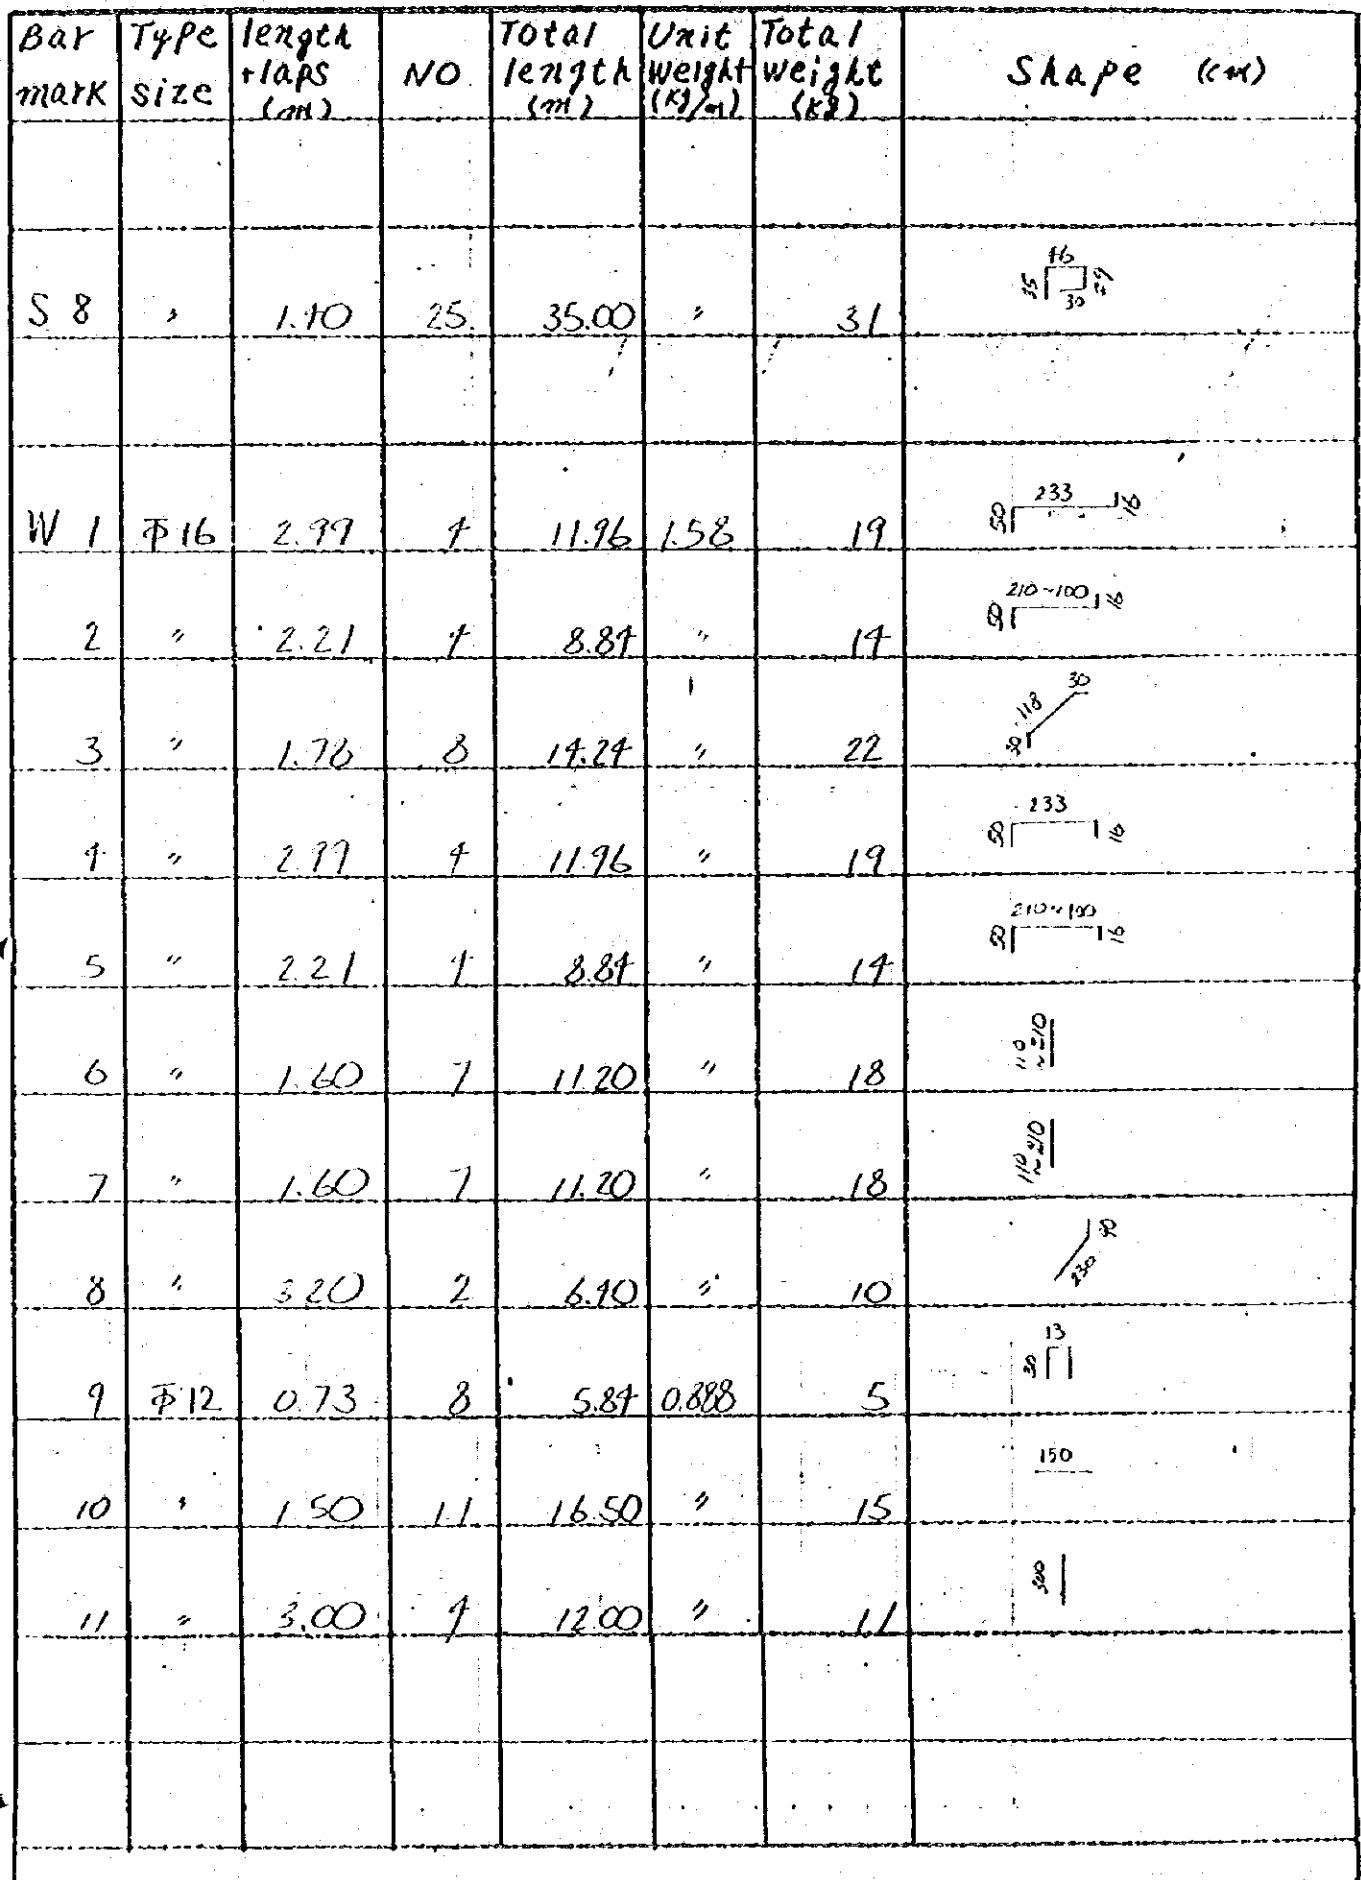 Bar mark Type size length +laps (m) NO Total length (m) Unit weight (kg/m) Total weight (kg) Shape (cm)
S 8 〃 1.40 25 35.00 〃 31 35 46 29 30
W 1 Φ16 2.99 4 11.96 1.58 19 50 233 16
2 〃 2.21 4 8.84 〃 14 50 210~100 16
3 〃 1.78 8 14.24 〃 22 30 118 30
4 〃 2.99 4 11.96 〃 19 50 233 16
5 〃 2.21 4 8.84 〃 14 50 210~100 16
6 〃 1.60 7 11.20 〃 18 110~210
7 〃 1.60 7 11.20 〃 18 110~210
8 〃 3.20 2 6.40 〃 10 230 90
9 Φ12 0.73 8 5.84 0.888 5 30 13
10 〃 1.50 11 16.50 〃 15 150
11 〃 3.00 4 12.00 〃 11 300